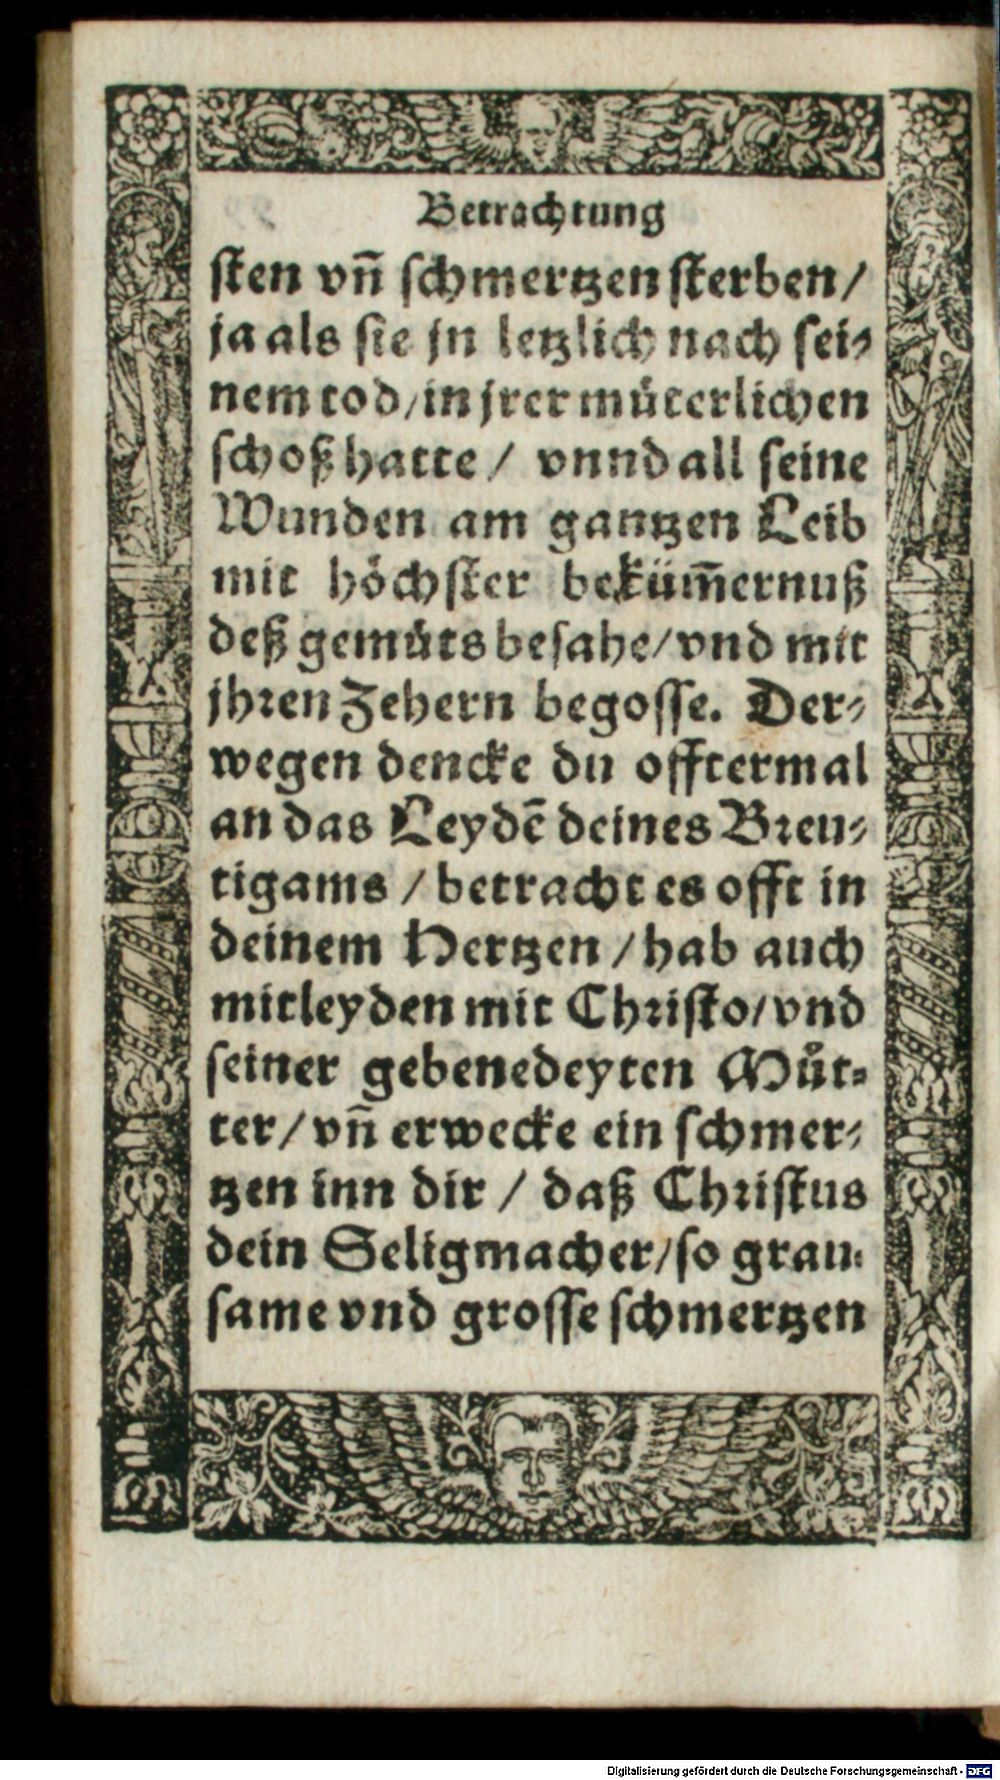 Betrachtung
sten vñ schmertzen sterben /
ja als sie jn letzlich nach sei⸗
nem tod / in jrer můterlichen
schoß hatte / vnnd all seine
Wunden am gantzen Leib
mit höchster beküm̄ernuß
deß gemůts besahe / vnd mit
jhren Zehern begosse. Der⸗
wegen dencke du offtermal
an das Leydē deines Breu⸗
tigams / betracht es offt in
deinem Hertzen / hab auch
mitleyden mit Christo / vnd
seiner gebenedeyten Můt⸗
ter / vñ erwecke ein schmer⸗
tzen inn dir / daß Christus
dein Seligmacher / so grau⸗
same vnd grosse schmertzen
Digitalisierung gefördert durch die Deutsche Forschungsgemeinschaft - DFG